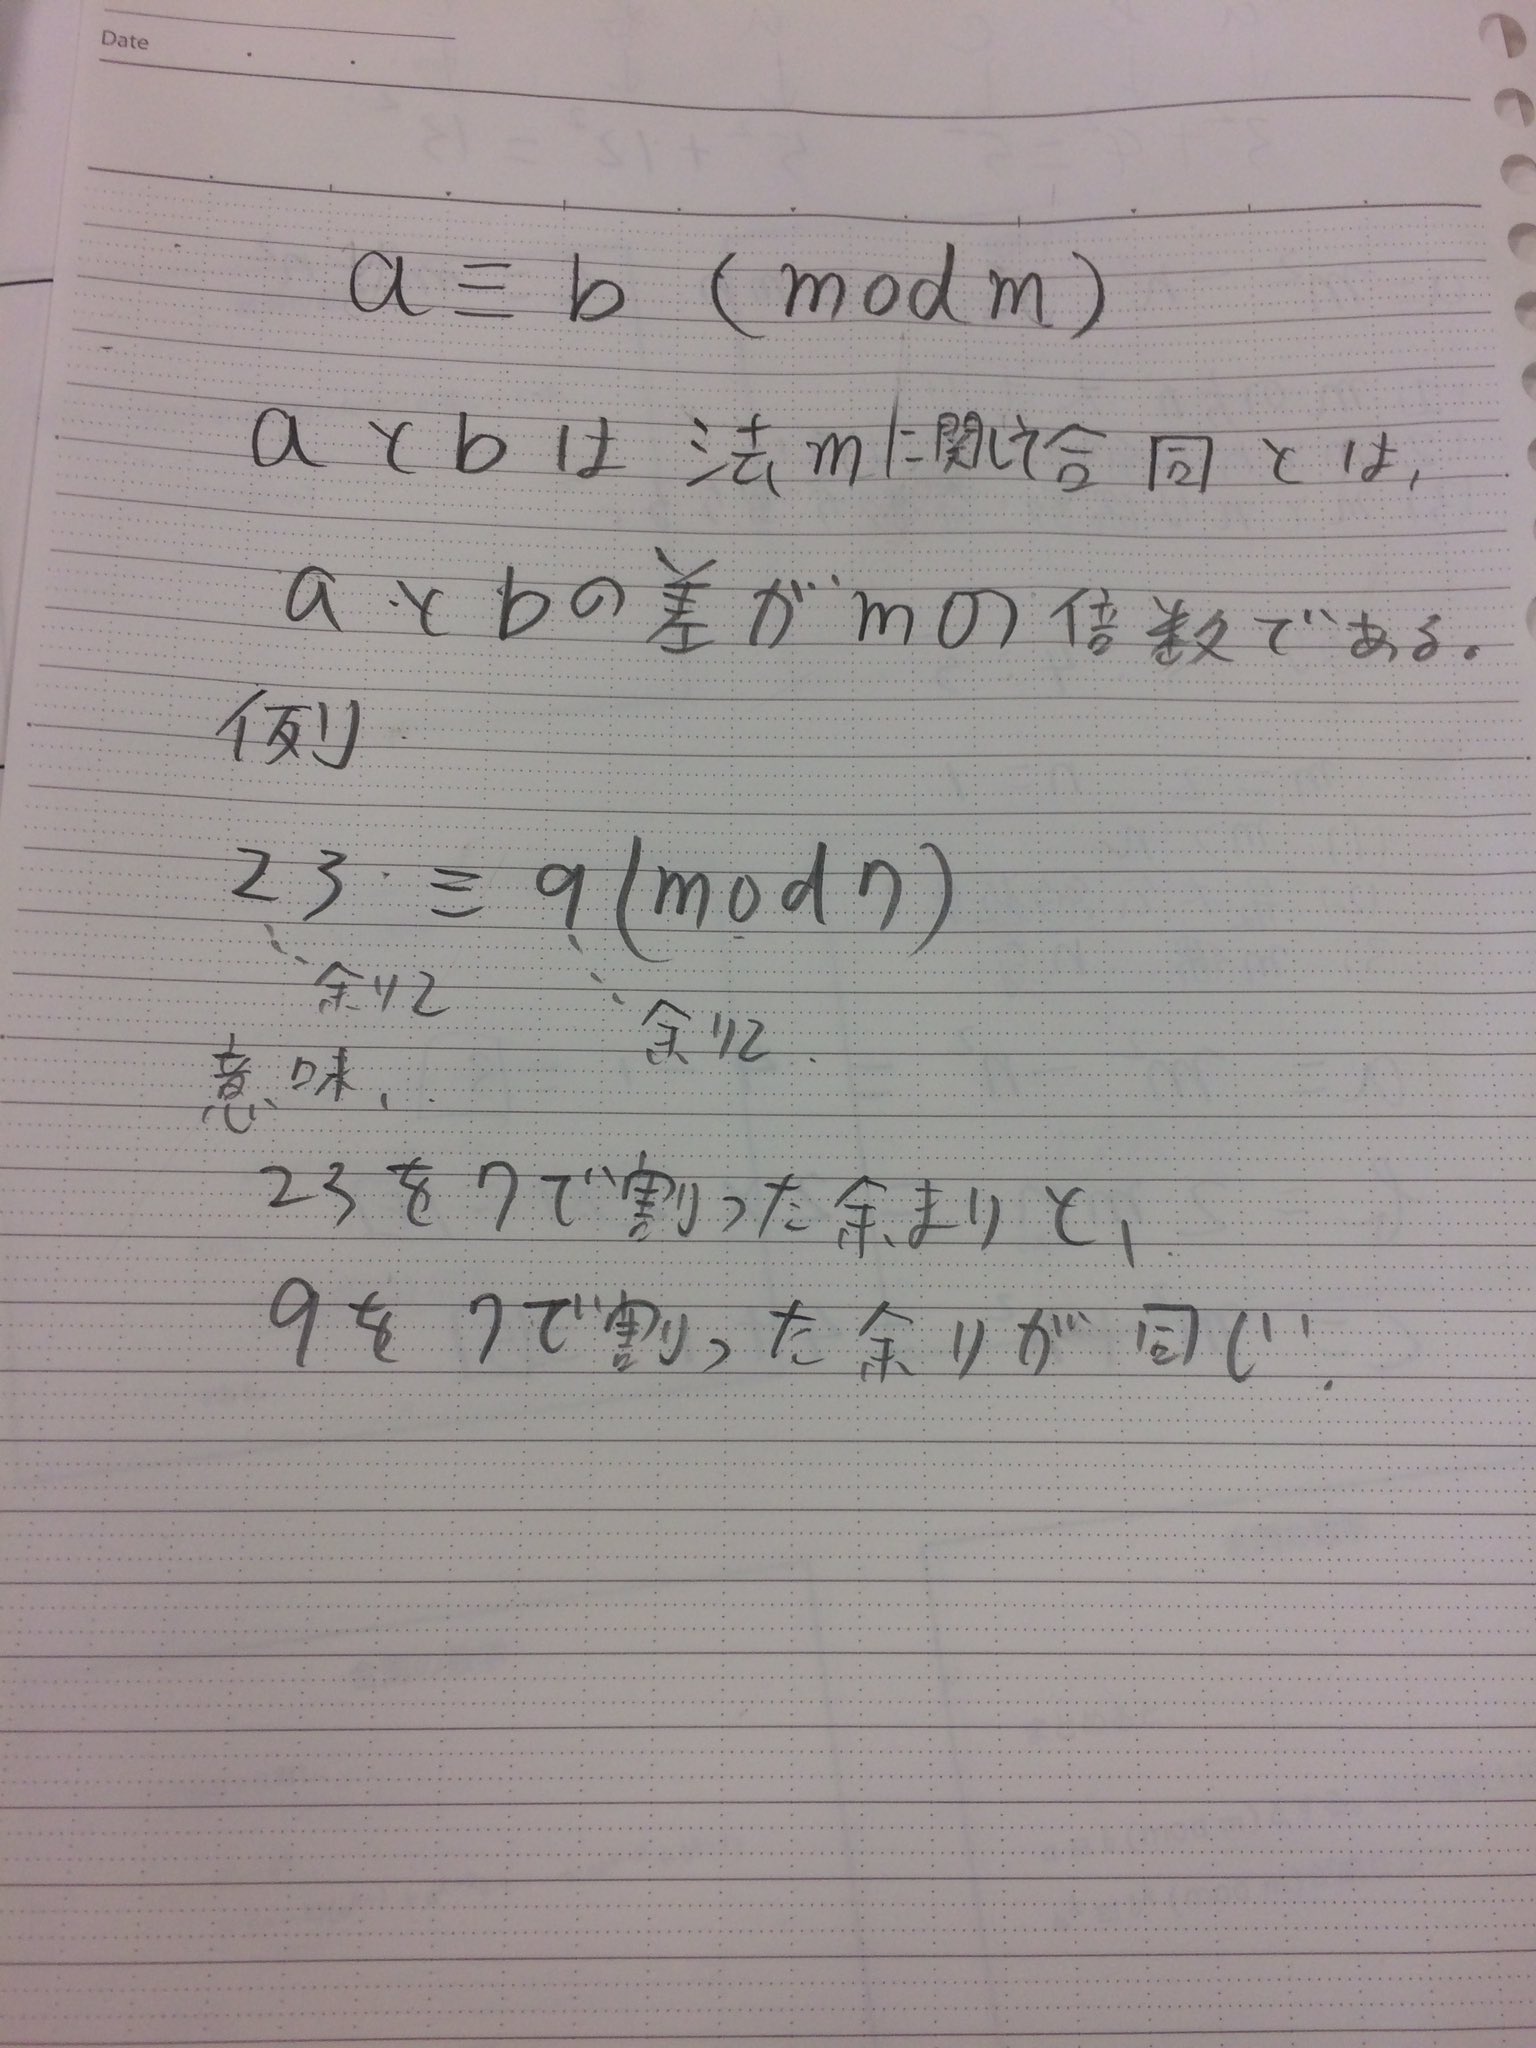 Date
a ≡ b (mod m)
aとbは法mに関して合同とは,
aとbの差がmの倍数である。
例
23 ≡ 9 (mod 7)
余り2
余り2
意味,
23を7で割った余まりと,
9を7で割った余りが同じ.